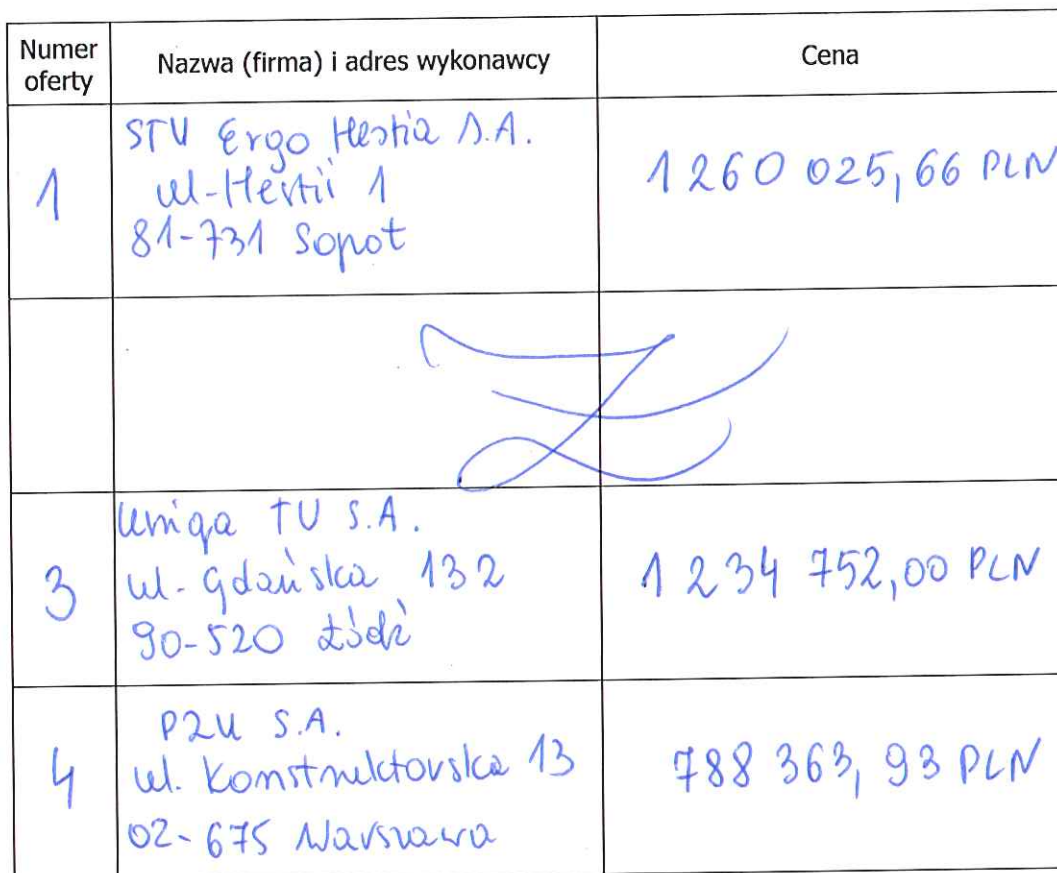 Numer oferty
Nazwa (firma) i adres wykonawcy
Cena
1
STU Ergo Hestia S.A.
ul. Hestii 1
81-731 Sopot
1 260 025,66 PLN
3
Uniqa TU S.A.
ul. Gdańska 132
90-520 Łódź
1 234 752,00 PLN
4
PZU S.A.
ul. Konstruktorska 13
02-675 Warszawa
788 363,93 PLN